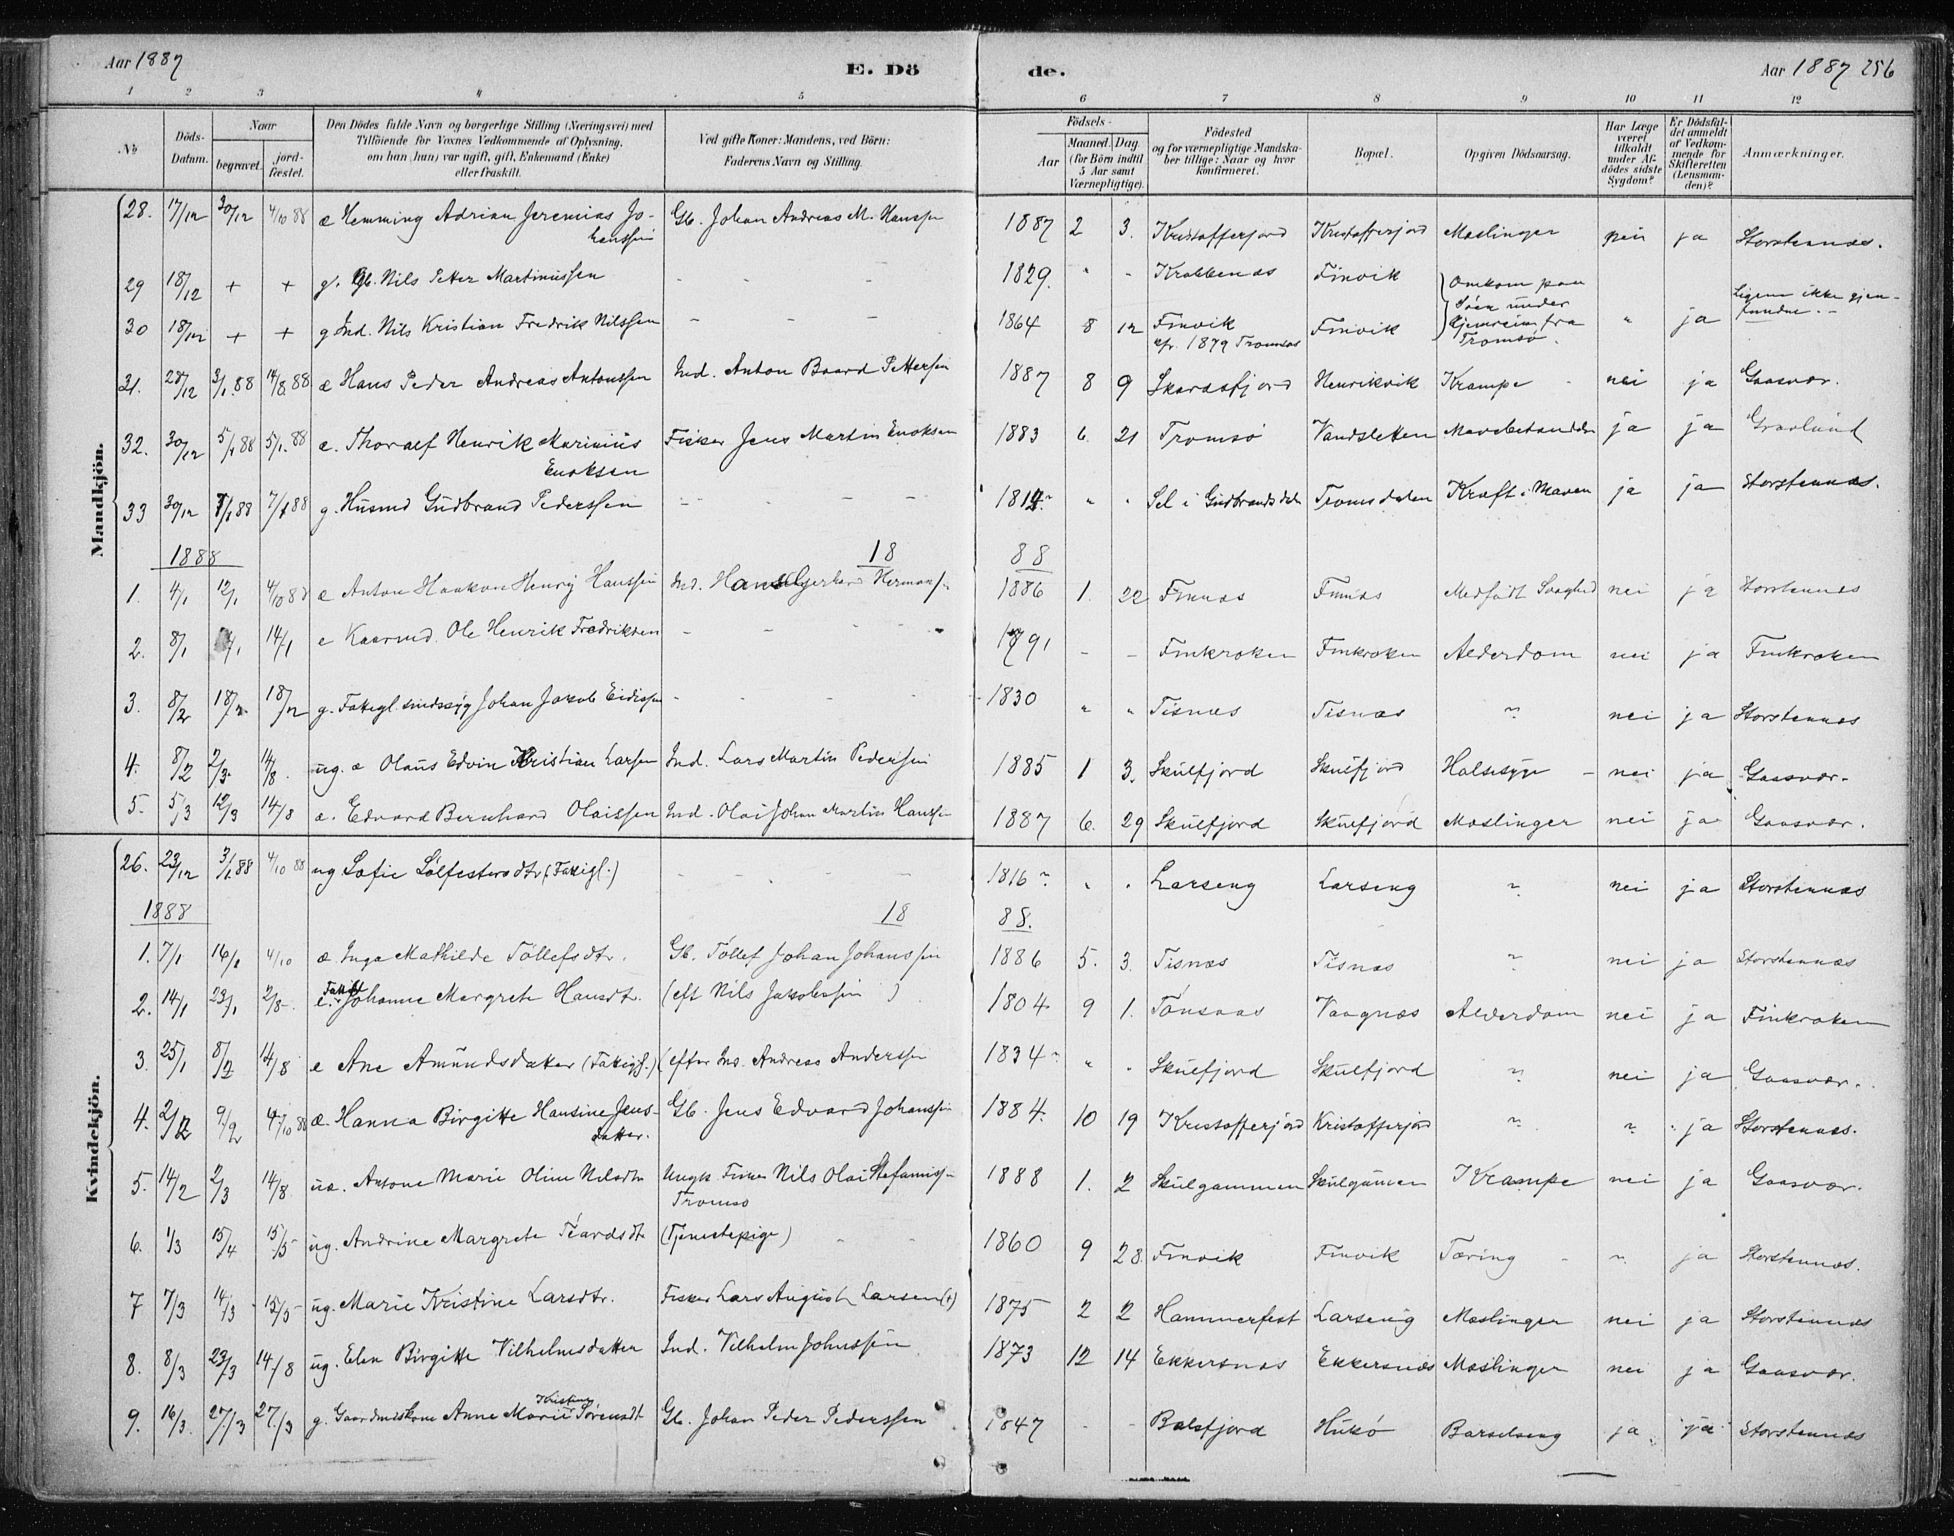 Aar 1887
E. Dö
de.
Aar 1887 256
1 2 3 4 5 6 7 8 9 10 11 12
No
Döds-Datum.
Naar
begravet.
jord-fæstet.
Den Dödes fulde Navn og borgerlige Stilling (Næringsvei) med
Tilföiende for Voxnes Vedkommende af Oplysning,
om han (hun) var ugift, gift, Enkemand (Enke)
eller fraskilt.
Ved gifte Koner: Mandens, ved Börn:
Faderens Navn og Stilling.
Födsels-
Aar
Maaned. Dag.
(for Börn indtil
5 Aar samt
Værnepligtige).
Födested
og for værnepligtige Mandska-
ber tillige: Naar og hvor
konfirmeret.
Bopæl.
Opgiven Dödsaarsag.
Har Læge
været
tilkaldt
under Af-
dödes sidste
Sygdom?
Er Dödsfal-
det anmeldt
af Vedkom-
mende for
Skifteretten
(Lensman-
den)?
Anmærkninger.
Mandkjön.
28. 17/12 30/12 4/10 88 æ Hemming Adrian Jeremias Jo-
hanssen Gb. Johan Andreas M. Hanssen 1887 2 3. Kristofferjord Kristofferjord Mæslinger nei ja Storstennæs.
29 18/12 + + g. Gb. Nils Petter Martinussen - - - 1829. " - Krabbenæs Finvik } Omkom paa
Søen under
Hjemreise fra
Tromsø. Ligene ikke gjen-
fundne. -
30 18/12 + + g Ind. Nils Kristian Fredrik Nilssen - - - 1864 8 12 Finvik
cfr. 1879 Tromsøs Finvik " ja
31. 28/12 3/1.88 14/8.88 æ Hans Peder Andreas Antonssen Ind. Anton Baard Pettersen 1887 8 9 Skardsfjord Henrikvik Krampe - nei ja Gaasvær.
32. 30/12 5/1 88 5/1.88 e. Thoralf Henrik Marinius
Enoksen Fisker Jens Martin Enoksen 1883 6. 21 Tromsø Vandsletten ja ja Gravlund
33 30/12 7/1 88 7/1 88 g. Husmd Gudbrand Pederssen - - - 1814. " . Sel i Gudbrandsdalen Tromsdalen Kræft i Maven ja ja Storstennæs.
1888 18 88
1. 4/1 12/1 4/10 88 e Anton Haakon Henrij Hanssen Ind. Hans Gerhard 1886 1. 22 Finnæs Finnæs Medfødt Svaghed nei ja Storstennæs
2. 8/1 14/1 e Kaarmd. Ole Henrik Fredriksen - - - 1791 - - Finkroken Finkroken Alderdom nei ja Finkroken
3. 8/2 18/2 18/12 g. Fattigl. sindssyg Johan Jakob - - - - 1830 " " Tisnæs Tisnæs " nei ja Storstennæs
4. 8/2 2/3. 14/8. ug. æ Olaus Edvin Kristian Larsen Ind. Lars Martin Pedersen 1885 1 3. Skulfjord Skulfjord Halsesyge - nei ja Gaasvær.
5. 5/3 12/3 14/8 æ. Edvard Bernhard Olaissen Ind. Olai Johan Martin Hanssen 1887 6. 29 Skulfjord Skulfjord Mæslinger nei ja Gaasvær.
Kvindekjön.
26. 23/12 3/1.88 4/10 88 ug Sofie Sølfestersdtr (Fattigl.) - - - - 1816 " . Larseng Larseng " nei ja Storstennæs
1888 18 88.
1. 7/1 16/1 4/10 æ. Inga Mathilde Tøllefsdtr. Gb. Tøllef Johan Johanssen 1886 5. 3. Tisnæs Tisnæs " nei ja Storstennæs
2. 14/1 23/1 2/8- e. Johanne Margrete Hansdtr. (eft Nils Jakobssen ) 1804 9 1. Tønsnæs Vaagnæs Alderdom nei ja Finkroken
3. 25/1 8/2 14/8 e Ane Amundsdatter (Fattigl.) (efter Ins. Andreas Anderssen 1834 " . Skulfjord Skulfjord " nei ja Gaasvær.
4. 2/2 9/2 4/10 88 æ. Hanna Birgitte Hansine Jens-
datter. Gb. Jens Edvard Johanssen 1884. 10 19 Kristofferjord Kristofferjord " " ja Storstennæs.
5. 14/2 2/3 14/8. uæ. Antone Marie Oline Nilsdtr Ungk. Fisker Nils Olai
Tromsø 1888 1. 2 Skulgammen Skulgammen Krampe nei ja Gaasvær.
6. 1/3 15/4 15/5 ug. Andrine Margrete (Tjenestepige) - - 1860 9 28. Finvik Finvik Tæring - " ja Storstennæs.
7 7/3 14/3 15/5- ug. Marie Kristine Larsdtr. Fisker Lars August Larsen (+) 1875 2 2 Hammerfest Larseng Mæslinger nei ja Storstennæs
8. 8/3 23/3 14/8 ug. Elen Birgitte Vilhelmsdatter Ind. Vilhelm Johnssen 1873 12 14 Ekkersnæs Ekkersnæs Mæslinger nei ja Gaasvær.
9. 16/3. 27/3 27/3 g. Gaardmdskone Anne Marie Kristine Sørensdtr Gb. Johan Peder Pederssen 1847 - - Balsfjord Hukø Barselseng ja. ja Storstennæs